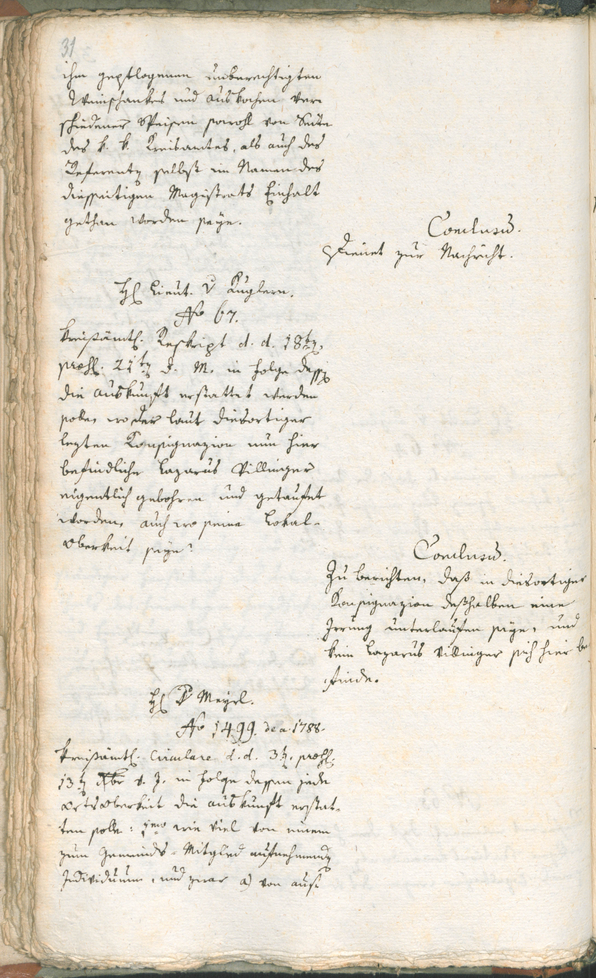 31
ihm gepflogenen unberechtigten
Weinschankes und auskochen ver-
schiedener Speisen sowohl von Seite
des k. k. Kreisamtes, als auch des
Referenten selbst im Namen des
diesseitigen Magistrats Einhalt
gethan worden seye.
Conclusum.
Dienet zur Nachricht.
H Lieut. v Kuglern.
No 67.
Kreisämtl. Reskript d. d. 18t
praes. 21t d. M. in Folge dessen
die Auskunft erstattet werden
solle, wo der laut diesortiger
lezten Konsignazion nun hier
befindliche Lazarus Villinger
eigentlich gebohren und getaufet
worden, auch wo seine Lokal-
Oberkeit seye?
Conclusum.
Zu berichten, daß in diesortiger
Konsignazion deßhalben eine
Irrung unterlaufen seye, und
kein Lazarus Villinger sich hier be-
finde.
H D Meyrl.
No 1499. de a 1788.
Kreisämtl. Circulare d. d. 3t, praes.
13t Xbr v. J. in Folge dessen jede
Ortsoberkeit die Auskunft erstat-
ten solle: 1mo wie viel von einem
zum Gemeinds-Mitglied aufnehmenden
Individuum, und zwar a) von aus-